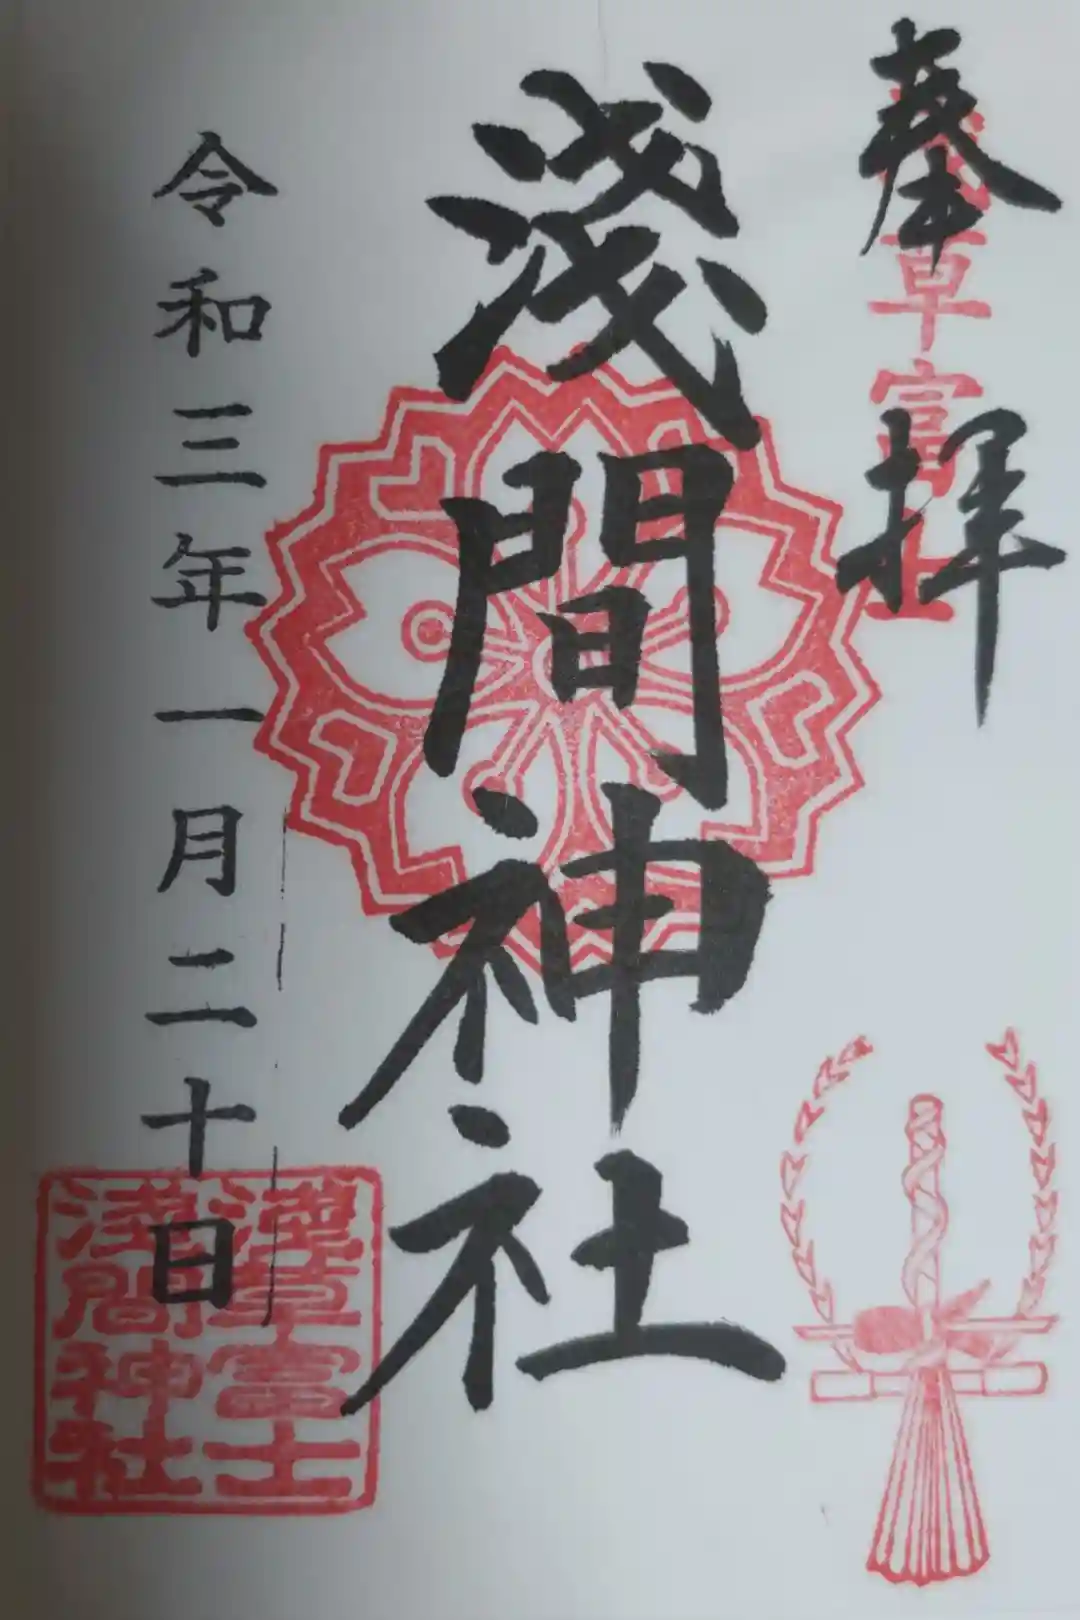 奉拝
浅草富士
淺間神社
令和三年一月二十日
淺草富士
淺間神社